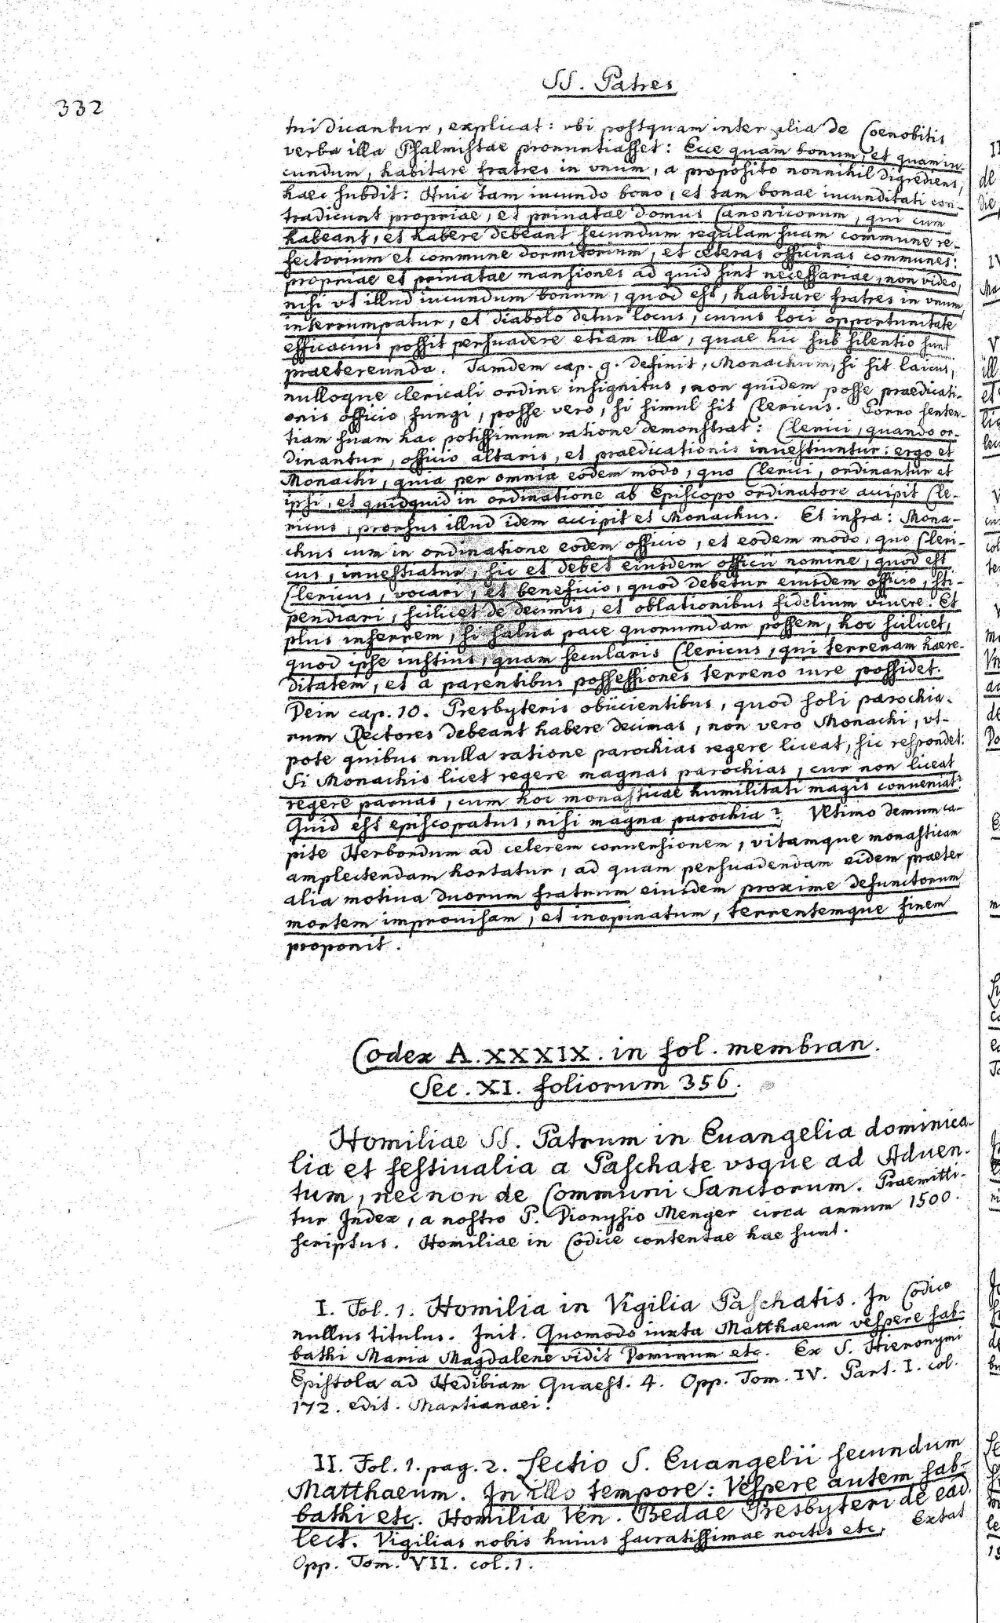 332
SS. Patres
tri dicantur, explicat: vbi postquam inter alia de Coenobitis
verba illa Psalmistae pronuntiasset: Ecce quam bonum, et quam iu-
cundum, habitare fratres in vnum, a proposito nonnihil digrediens,
haec subdit: Huic tam iucundo bono, et tam bonae iucunditati con-
tradicunt propriae, et priuatae domus Canonicorum, qui cum
habeant, et habere debeant secundum regulam suam commune re-
fectorium et commune dormitorium, et ceteras officinas communes:
propriae et priuatae mansiones ad quid sint necessariae, non video,
nisi vt illud iucundum bonum, quod est, habitare fratres in vnum
interrumpatur, et diabolo detur locus, cuius loci opportunitate
efficacius possit persuadere etiam illa, quae hic sub silentio sunt
praetereunda. Tandem cap. 9. definit, Monachum, si sit laicus,
nulloque clericali ordine insignitus, non quidem posse praedicati-
onis officio fungi, posse vero, si simul sit Clericus. Porro senten-
tiam suam hac potissimum ratione demonstrat: Clerici, quando or-
dinantur, officio altaris, et praedicationis inuestiuntur: ergo et
Monachi, quia per omnia eodem modo, quo Clerici, ordinantur et
ipsi, et quidquid in ordinatione ab Episcopo ordinatore accipit Cle-
ricus, prorsus illud idem accipit et Monachus. Et infra: Mona-
chus cum in ordinatione eodem officio, et eodem modo, quo Cleri-
cus, inuestiatur, sic et debet eiusdem officii nomine, quod est
Clericus, vocari, et beneficio, quod debetur eiusdem officio, sti-
pendiari, scilicet de decimis, et oblationibus fidelium viuere. Et
plus inferrem, si salua pace quorumdam possem, hoc scilicet,
quod ipse iustius, quam secularis Clericus, qui terrenam haere-
ditatem, et a parentibus possessiones terreno iure possidet.
Dein cap. 10. Presbyteris obiicientibus, quod soli parochia-
rum Rectores debeant habere decimas, non vero Monachi, vt-
pote quibus nulla ratione parochias regere liceat, sic respondet:
Si Monachis licet regere magnas parochias, cur non liceat
regere paruas, cum hoc monasticae humilitati magis conueniat?
Quid est episcopatus, nisi magna parochia? Vltimo demum ca-
pite Herbordum ad celerem conuersionem, vitamque monasticam
amplectendam hortatur, ad quam persuadendam eidem praeter
alia motiua duorum fratrum eiusdem proxime defunctorum
mortem improuisam, et inopinatum, terrentemque finem
proponit.
Codex A. XXXIX. in fol. membran.
Sec. XI. foliorum 356.
Homiliae SS. Patrum in Euangelia dominica-
lia et festiualia a Paschate vsque ad Aduen-
tum, nec non de Communi Sanctorum. Praemitti-
tur Index, a nostro P. Dionysio Menger circa annum 1500.
scriptus. Homiliae in Codice contentae hae sunt.
I. Fol. 1. Homilia in Vigilia Paschatis. In Codice
nullus titulus. Init. Quomodo iuxta Matthaeum vespere sab-
bathi Maria Magdalene vidit Dominum etc. Ex S. Hieronymi
Epistola ad Hedibiam Quaest. 4. Opp. Tom. IV. Part. I. col.
172. edit. Martianaei.
II. Fol. 1. pag. 2. Lectio S. Euangelii secundum
Matthaeum. In illo tempore: Vespere autem sab-
bathi etc. Homilia Ven. Bedae Presbyteri de ead.
lect. Vigilias nobis huius sacratissimae noctis etc. Extat
Opp. Tom. VII. col. 1.